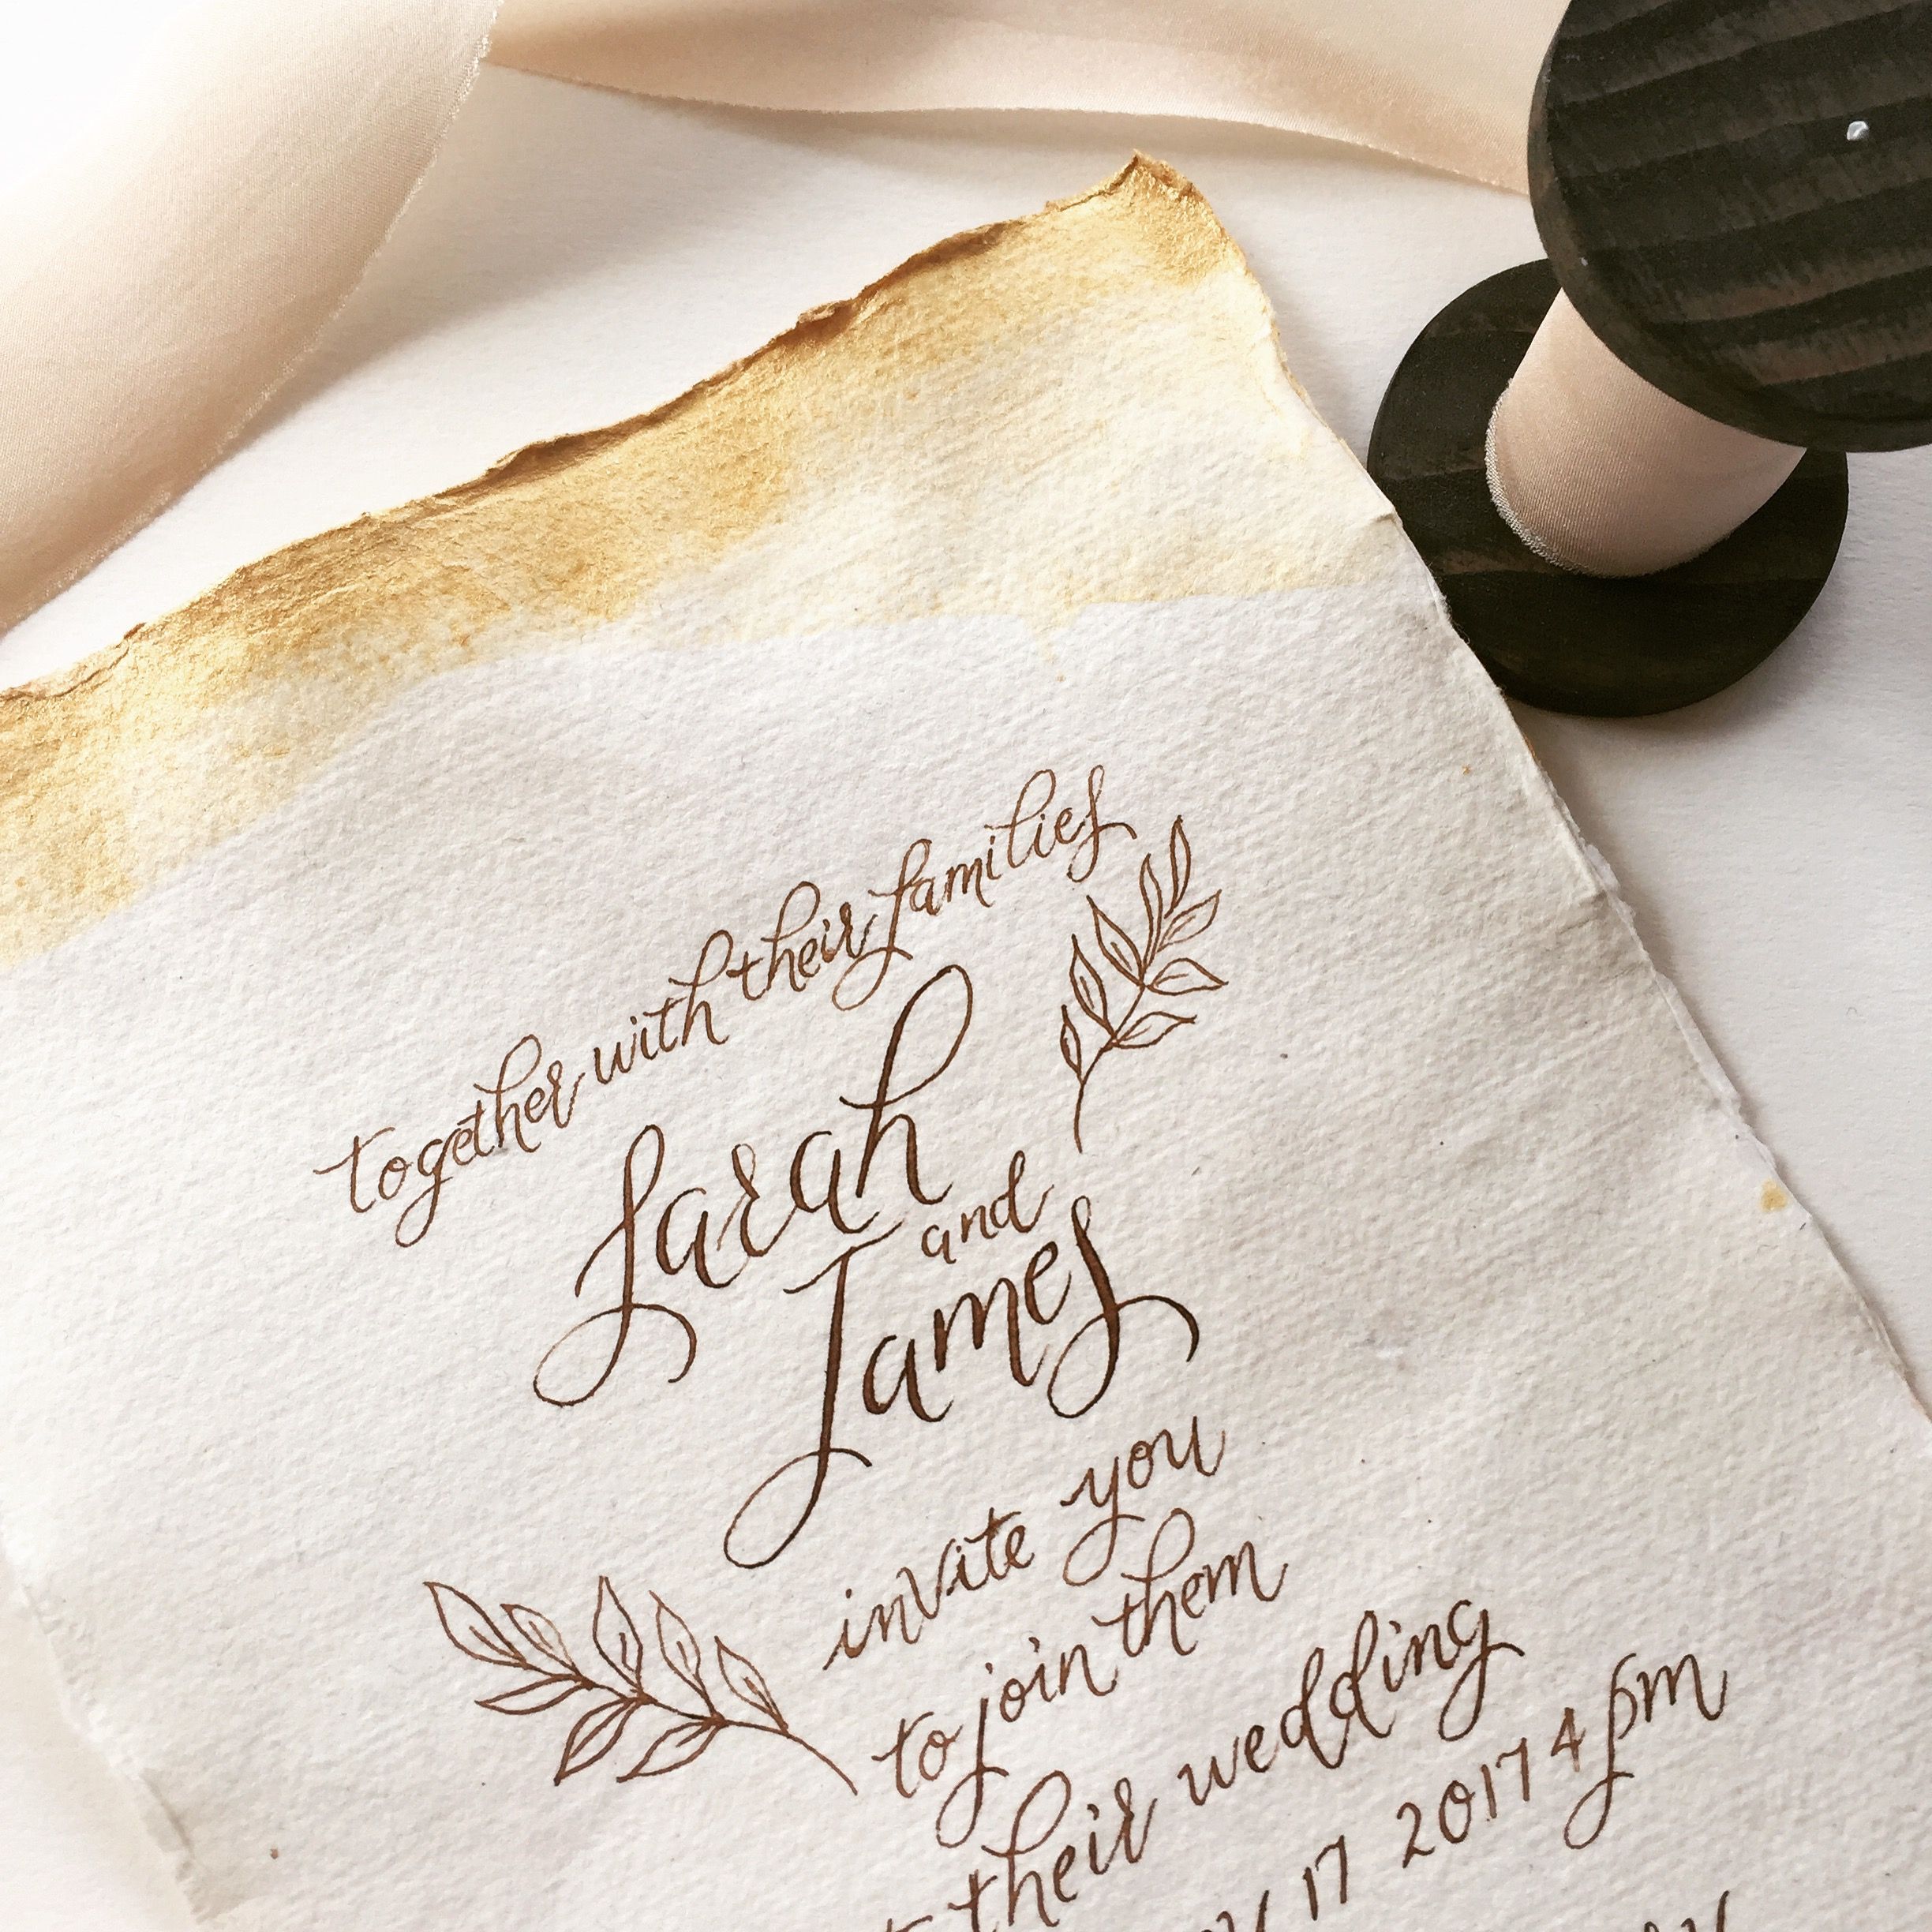 together with their families
Sarah
and
James
invite you
to join them
their wedding
17 2017 4pm